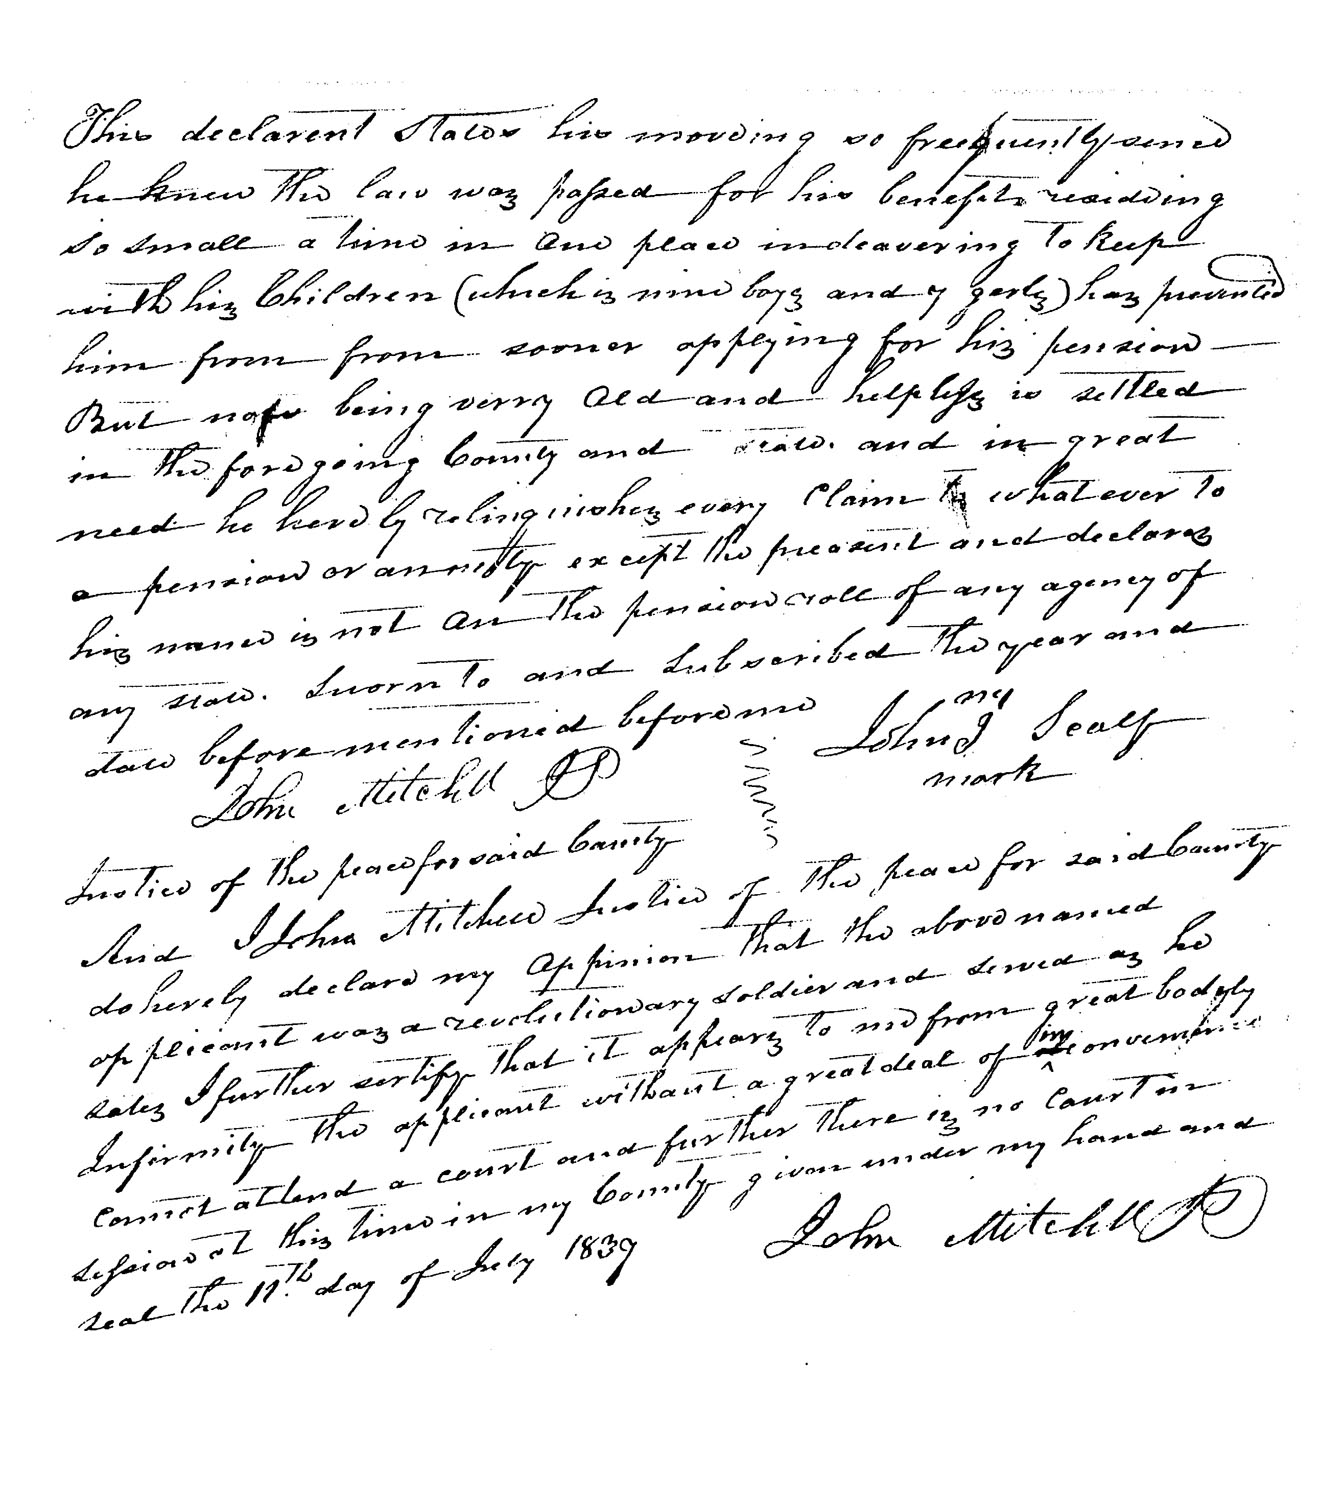 This declarent States his moveing so freequently sence
he knew the law was passed for his benefit resideing
so small a time in one place indeavering to keep
with his Children (which is nine boys and 7 gerls) has prevented
him from from sooner applying for his pension
But now being verry old and helpless is settled
in the foregoing County and State. and in great
need he hereby relinquishes every Claim whatever to
a pension or annuity except the present and declares
his name is not on the pension roll of any agency of
any state. Sworn to and Subscribed the year and
date before mentioned before me
my
John J Scalf
mark
John Mitchell JP
Justice of the peace for said County
And I John Mitchell Justice of the peace for said County
do hereby declare my oppinion that the above named
applicant was a revolutionary soldier and served as he
sates I further sertify that it appears to me from great bodyly
Infirmity the applicant without a great deal of inconvenience
cannot attend a court and further there is no Court in
session at this time in my County given under my hand and
seal the 11th day of July 1839
John Mitchell JP